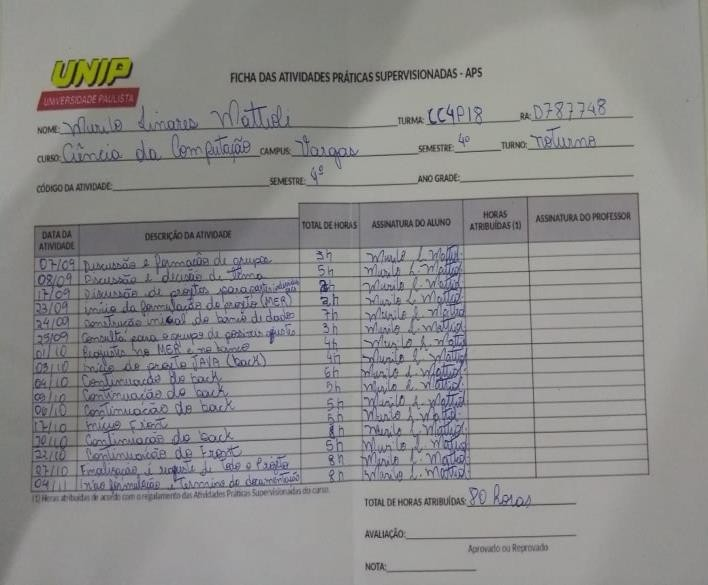 UNIP
UNIVERSIDADE PAULISTA
FICHA DAS ATIVIDADES PRÁTICAS SUPERVISIONADAS - APS
NOME: Murilo Linares Mattioli TURMA: CC4P18 RA: D787748
CURSO: Ciência da Computação CAMPUS: Vargas SEMESTRE: 4º TURNO: noturno
CÓDIGO DA ATIVIDADE: SEMESTRE: 4º ANO GRADE:
DATA DA ATIVIDADE DESCRIÇÃO DA ATIVIDADE TOTAL DE HORAS ASSINATURA DO ALUNO HORAS ATRIBUÍDAS (1) ASSINATURA DO PROFESSOR
07/09 Discussão e formação de grupos 3h Murilo L. Mattioli
08/09 Discussão e decisão do tema 5h Murilo L. Mattioli
17/09 Discussão de projetos para Murilo L. Mattioli
23/09 início da formulação do projeto (MER) 2h Murilo L. Mattioli
24/09 construção inicial do banco de dados 7h Murilo L. Mattioli
25/09 Consulta para o grupo de possíveis ajustes 3h Murilo L. Mattioli
01/10 Reajustes no MER e no banco 4h Murilo L. Mattioli
03/10 Início do projeto JAVA (back) 4h Murilo L. Mattioli
04/10 Continuação do back 6h Murilo L. Mattioli
Continuação do back 5h Murilo L. Mattioli
06/10 Continuação do back 5h Murilo L. Mattioli
17/10 Início Front 5h Murilo L. Mattioli
20/10 Continuação do back 8h Murilo L. Mattioli
22/10 Continuação do Front 5h Murilo L. Mattioli
27/10 Finalização e reajuste de todo o Projeto 8h Murilo L. Mattioli
04/11 formulação e Termino da documentação 8h Murilo L. Mattioli
(1) Horas atribuídas de acordo com o regulamento das Atividades Práticas Supervisionadas do curso.
TOTAL DE HORAS ATRIBUÍDAS: 80 horas
AVALIAÇÃO:
Aprovado ou Reprovado
NOTA: